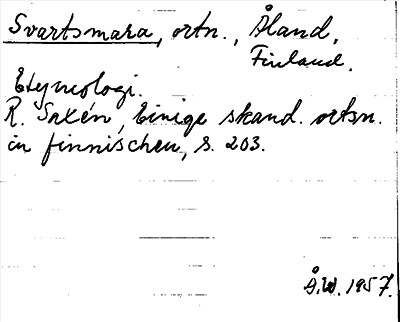 Svartsmara, ortn., Åland,
Finland.
Etymologi.
R. Saxén, Einige skand. ortsn.
in finnischen, s. 203.
Å.W. 1957.